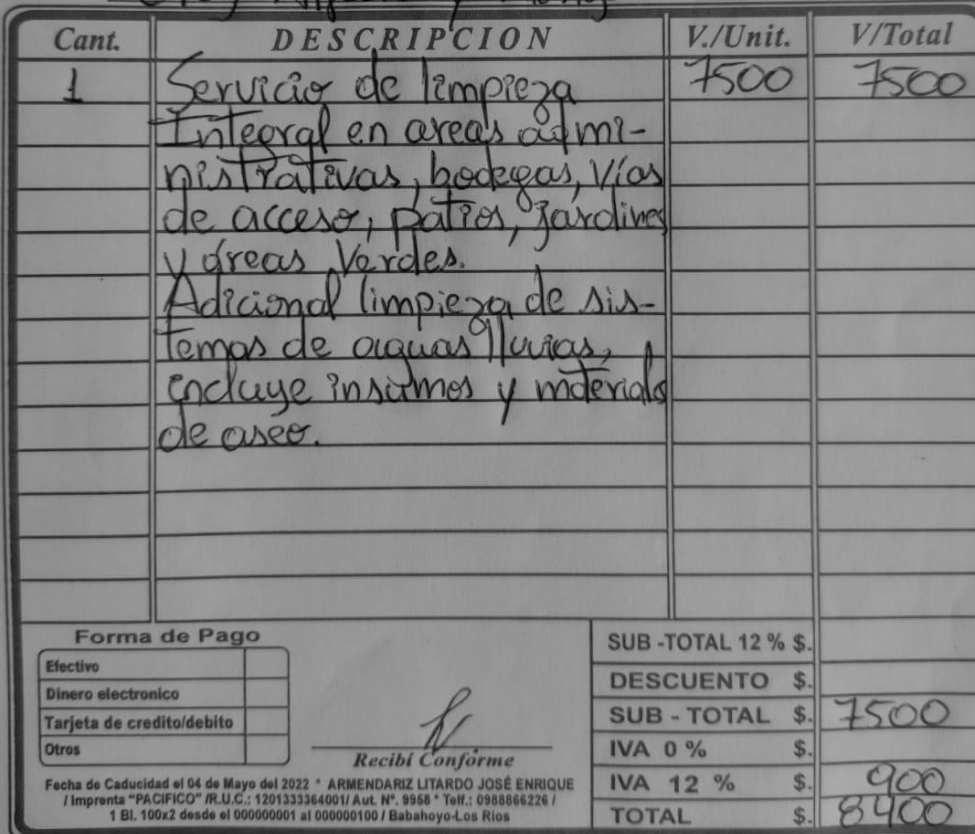 Cant. DESCRIPCION V./Unit. V/Total
1 Servicio de limpieza 7500 7500
Integral en areas admi-
nistrativas, bodegas, Vías
de acceso, patios, Jardines
y áreas Verdes.
Adicional limpieza de sis-
temas de aguas lluvias,
incluye insumos y materiales
de aseo.
Forma de Pago
Efectivo
Dinero electronico
Tarjeta de credito/debito
Otros
Recibí Conforme
Fecha de Caducidad el 04 de Mayo del 2022 * ARMENDARIZ LITARDO JOSÉ ENRIQUE
/ Imprenta "PACIFICO" /R.U.C.: 1201333364001/ Aut. Nº. 9958 * Telf.: 0988866226 /
1 Bl. 100x2 desde el 000000001 al 000000100 / Babahoyo-Los Rios
SUB -TOTAL 12 % $.
DESCUENTO $.
SUB - TOTAL $. 7500
IVA 0 % $.
IVA 12 % $. 900
TOTAL $. 8400